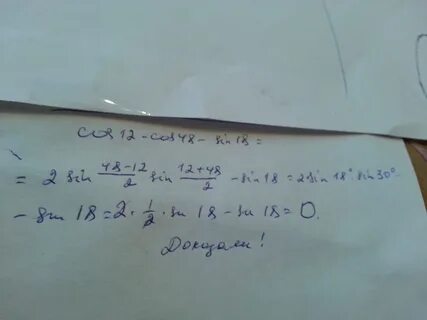 cos 12 - cos 48 - sin 18 =
= 2 sin (48-12)/2 sin (12+48)/2 - sin 18 = 2 sin 18° · sin 30° -
- sin 18 = 2 · 1/2 · sin 18 - sin 18 = 0.
Доказали!